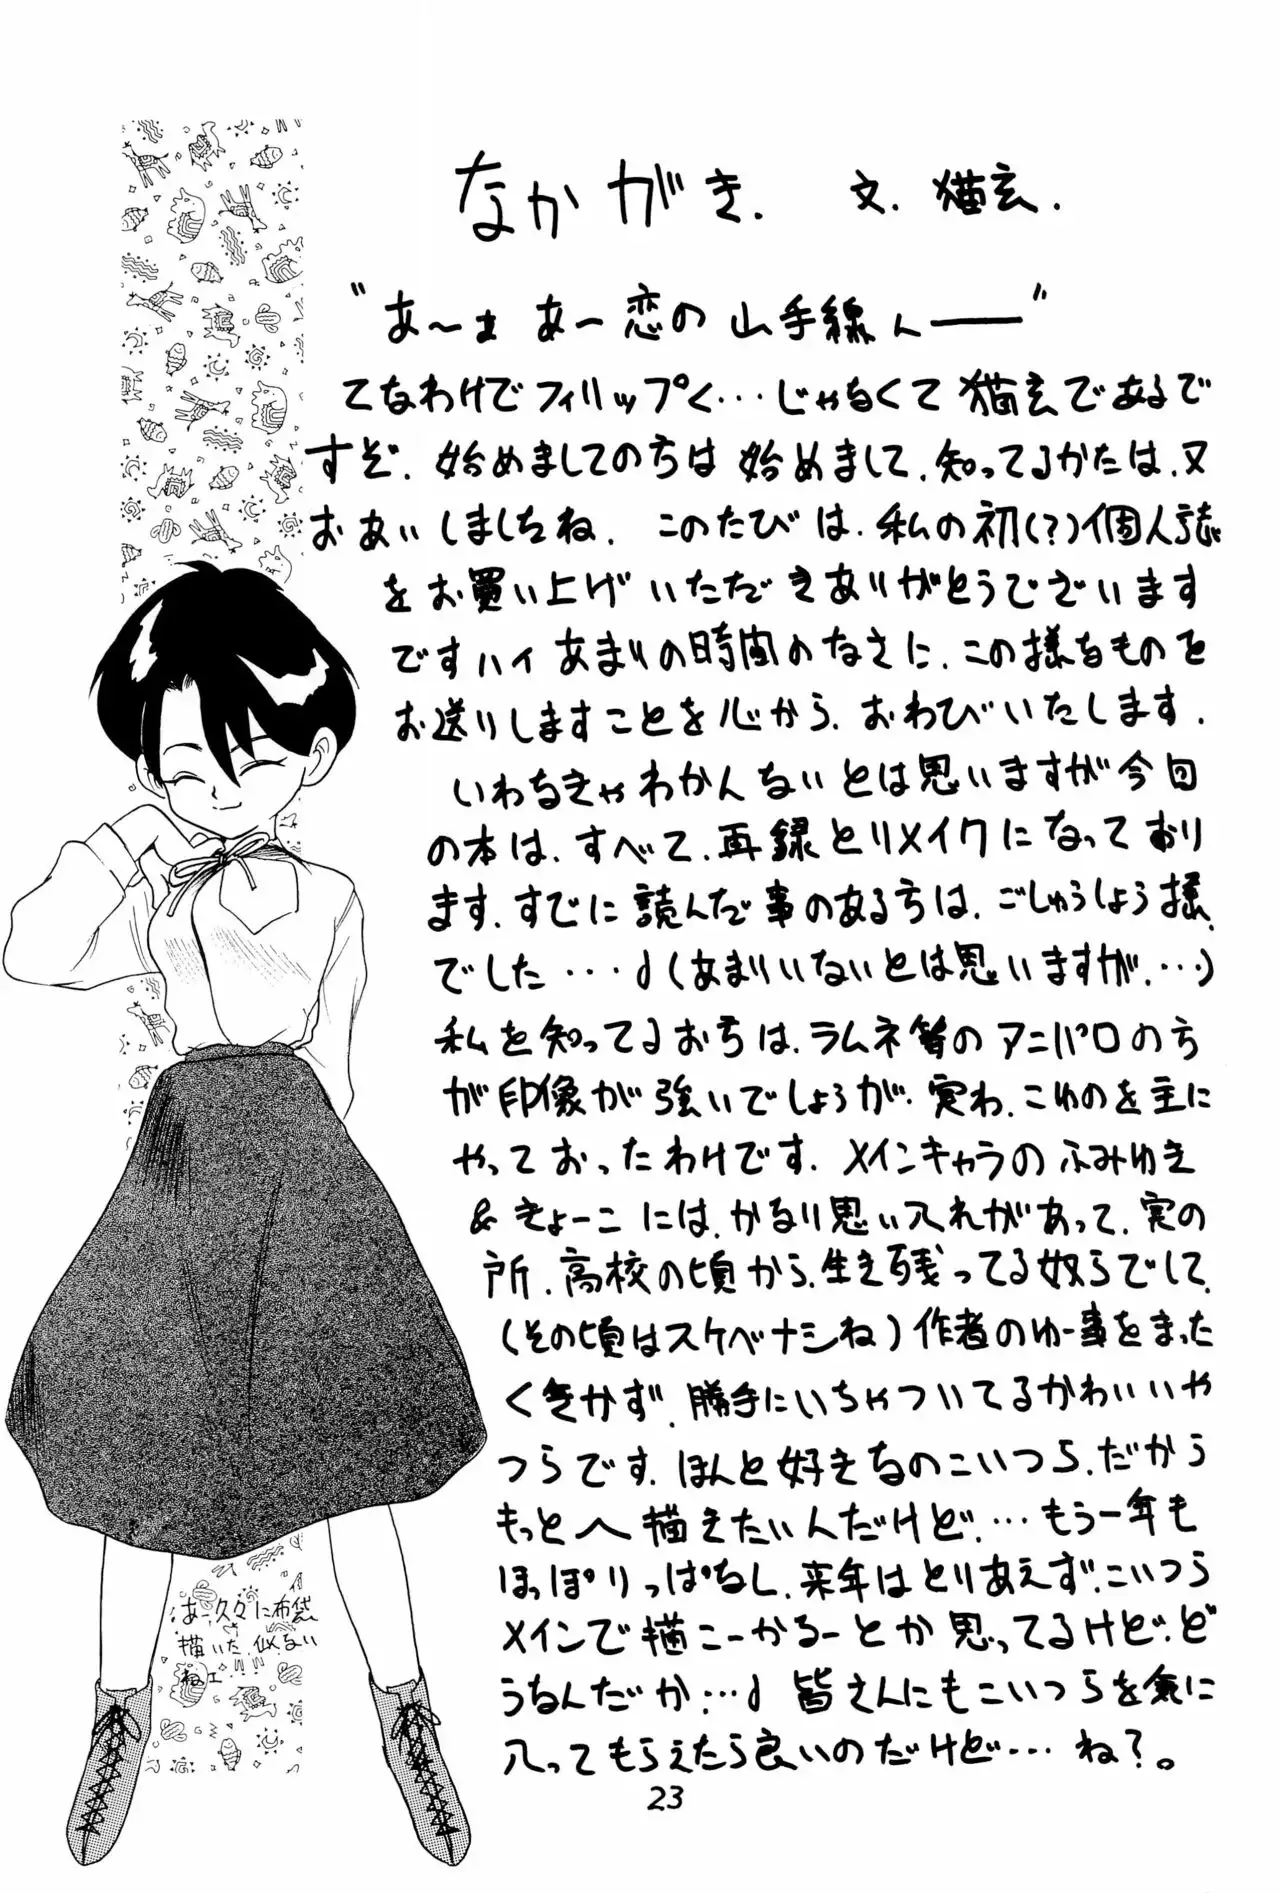 なかがき. 文. 猫玄.
"あ〜ぁ あー恋の山手線んー"
てなわけでフィリップく…じゃなくて猫玄であるで
すぞ. 始めましての方は始めまして. 知ってるかたは. 又
おあいしましたね. このたびは. 私の初(?)個人誌
をお買い上げいただきありがとうでございます
ですハイ あまりの時間のなさに. この様なものを
お送りしますことを心から. おわびいたします.
いわなきゃわかんないとは思いますが今回
の本は. すべて. 再録とリメイクになっており
ます. すでに読んだ事のある方は. ごしゅうしょう様.
でした…♩(あまりいないとは思いますが.…)
私を知ってるおちは. ラムネ等のアニパロの方
が印像が強いでしょうが. 実わ. こゆのを主に
やっておったわけです. メインキャラのふみゆき
&きょーこには. かなり思い入れがあって. 実の
所. 高校の頃から. 生き残ってる奴らでして.
(その頃はスケベナシね)作者のゆー事をまった
くきかず. 勝手にいちゃついてるかわいいや
つらです. ほんと好きなのこいつら. だから
もっとへ描きたいんだけど.…もう一年も
ほっぽりっぱなし. 来年はとりあえず. こいつら
メインで描こーかなーとか思ってるけど. ど
うなんだか…♩ 皆さんにもこいつらを気に
入ってもらえたら良いのだけど…ね?。
あー久々に布袋
描いた. 似ない
ねェ
23